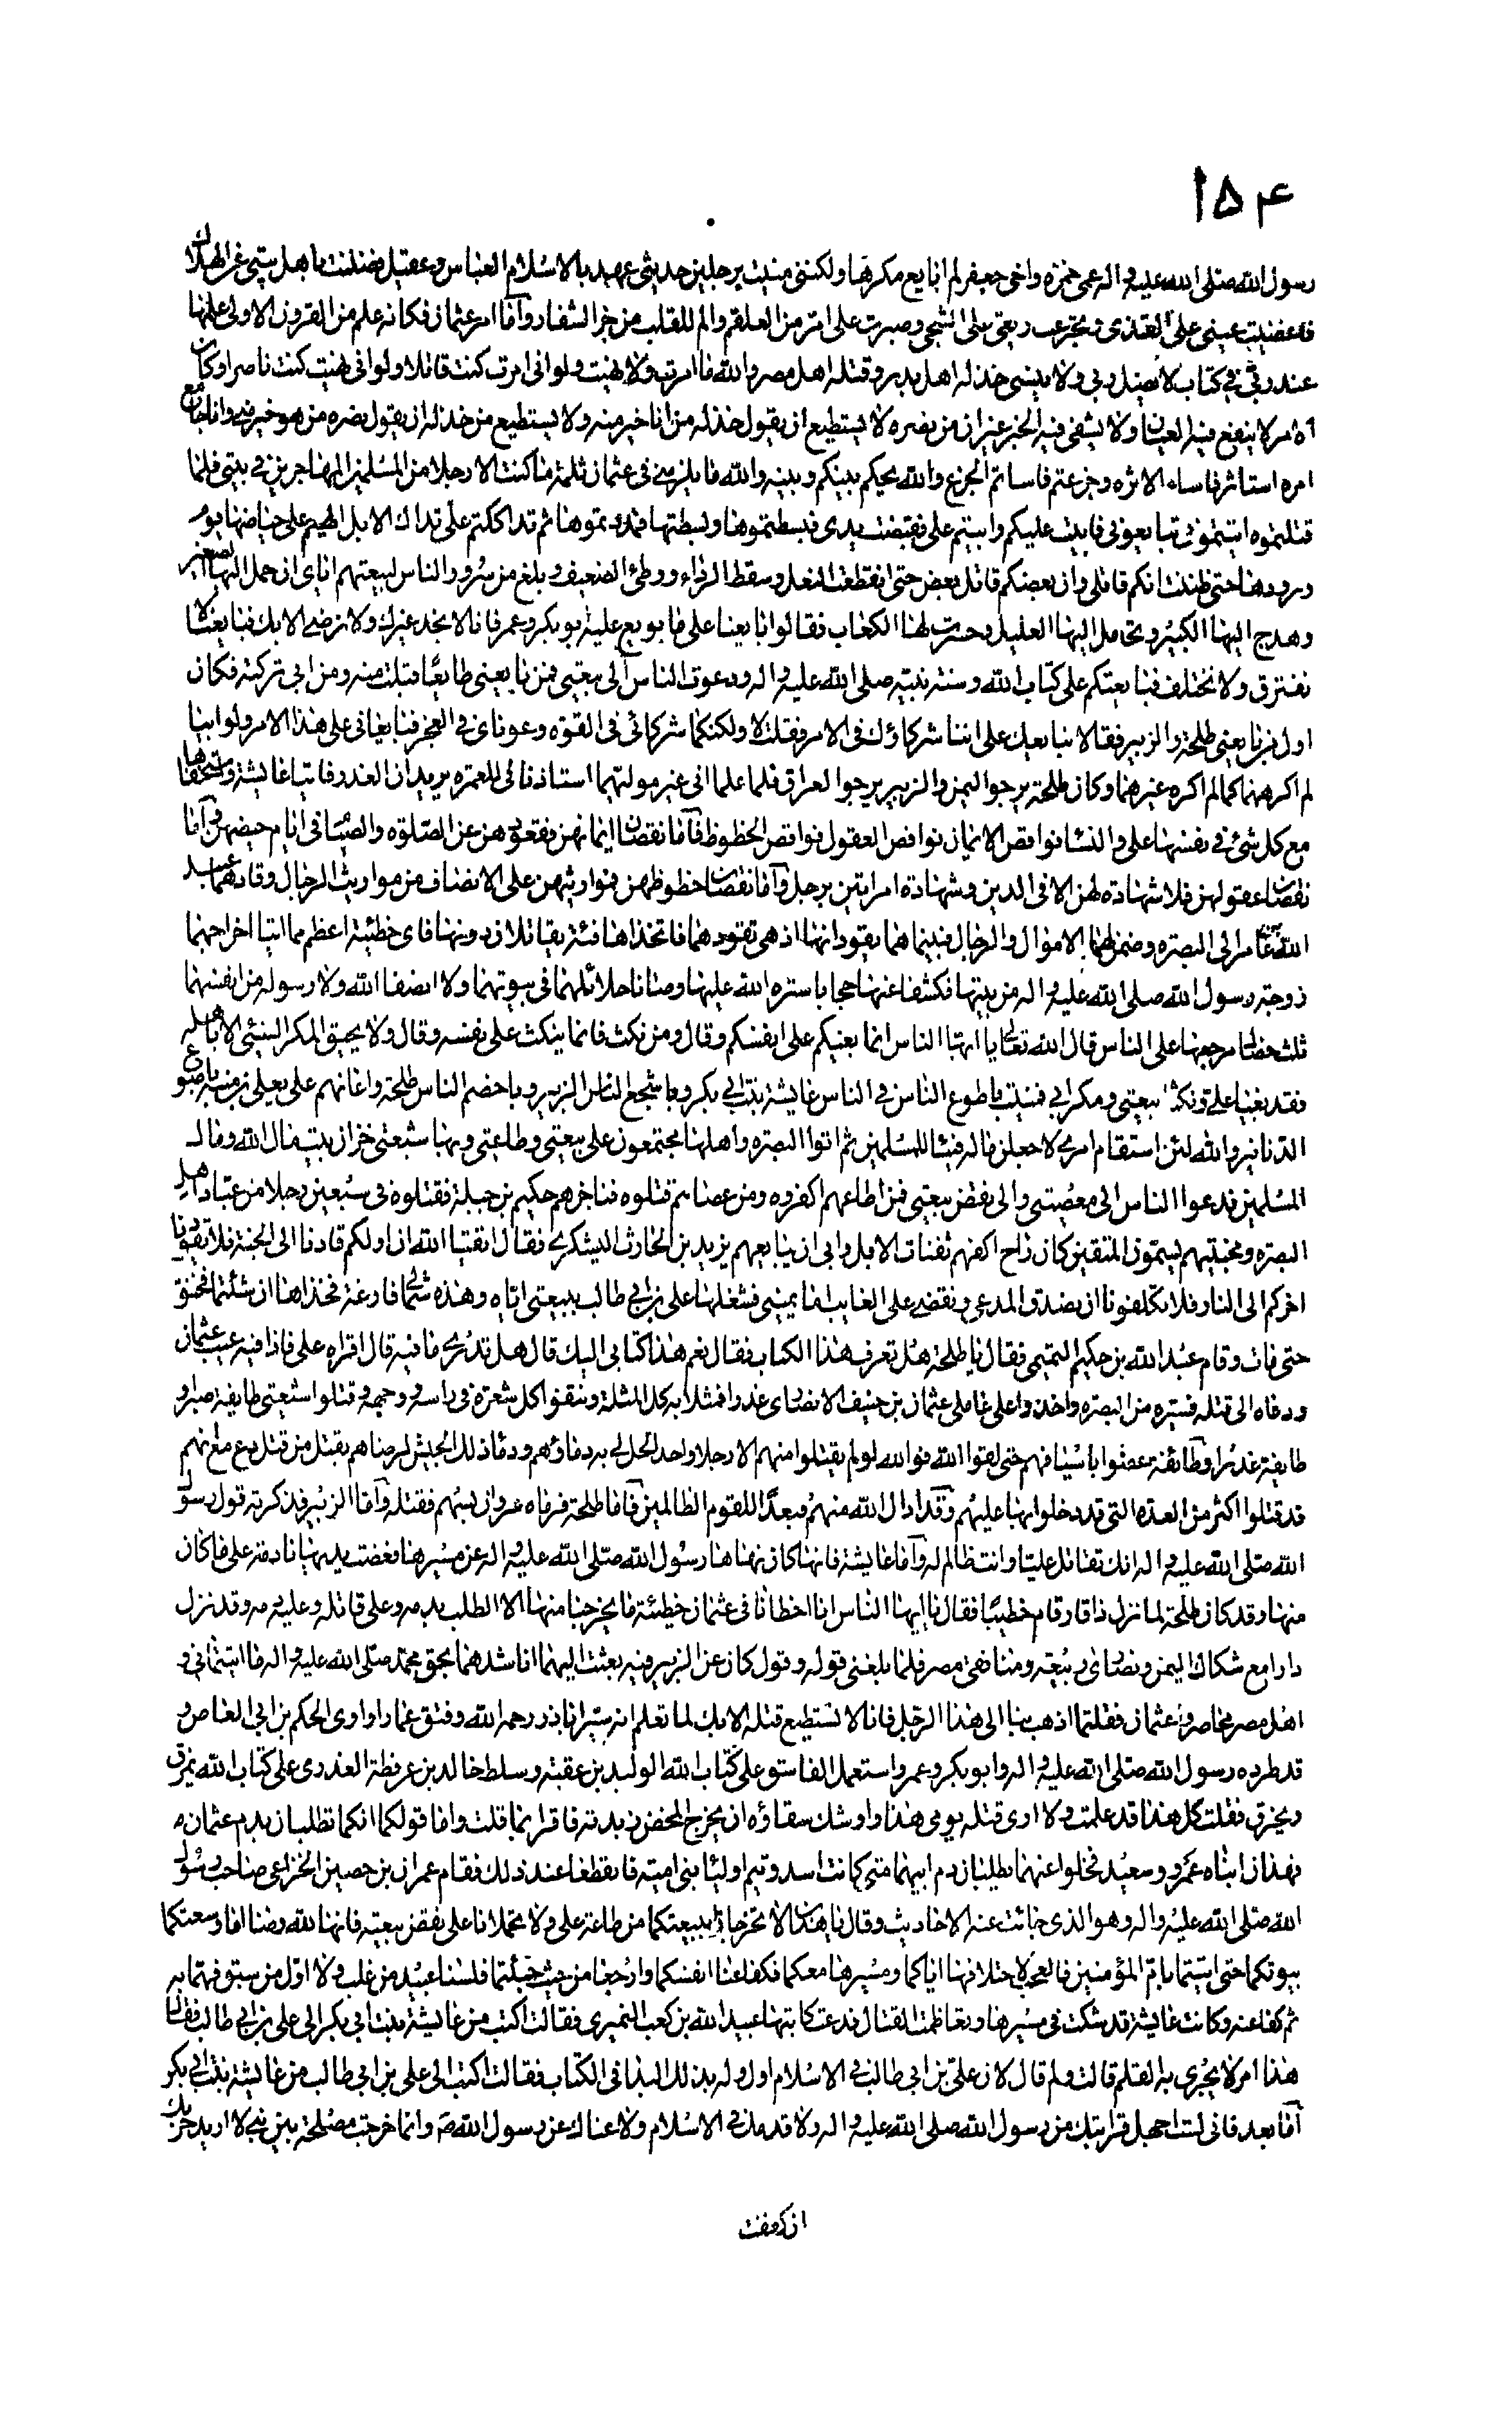 ١٥٤
رسول الله صلى الله عليه واله عمى حمزه واخى جعفر لم ابايع مكرها ولكننى منيت برجلين حديثى عهد بالاسلام العباس وعقيل فضننت باهل بيتى عن الهلاك
فاغضيت عينى على القذى وتجرعت ريقى على الشجى وصبرت على امر من العلقم والم للقلب من حز الشفار واما امر عثمان فكانه علم من القرون الاولى علمها
عند ربى فى كتاب لا يضل ربى ولا ينسى خذله اهل بدر وقتله اهل مصر والله ما امرت ولا نهيت ولو انى امرت كنت قاتلا ولو انى نهيت كنت ناصرا وكان
الامر لا ينفع فيه العيان ولا يشفى فيه الخبر غير ان من نصره لا يستطيع ان يقول خذله من انا خير منه ولا يستطيع من خذله ان يقول نصره من هو خير منى وانا جامع
امره استاثر فاساء الاثره وجزعتم فاساتم الجزع والله يحكم بينكم وبينه والله ما يلزمنى فى عثمان ثلمة ما كنت الا رجلا من المسلمين المهاجرين فى بيتى فلما
قتلتموه اتيتمونى تبايعونى فابيت عليكم وابيتم على فقبضت يدى فبسطتموها وبسطتها فمددتموها ثم تداككتم على تداك الابل الهيم على حياضها يوم
ورودها حتى ظننت انكم قاتلى وان بعضكم قاتل بعض حتى انقطعت النعل وسقط الرداء ووطئ الضعيف وبلغ من سرور الناس ببيعتهم اياى ان حمل اليها الصغير
وهدج اليها الكبير وتحامل اليها العليل وحسرت لها الكعاب فقالوا بايعنا على ما بويع عليه ابو بكر وعمر فانا لا نجد غيرك ولا نرضى الا بك فبايعنا لا
نفترق ولا نختلف فبايعتكم على كتاب الله وسنة نبيه صلى الله عليه واله ودعوت الناس الى بيعتى فمن بايعنى طايعا قبلت منه ومن ابى تركته فكان
اول من بايعنى طلحة والزبير فقالا نبايعك على اننا شركاؤك فى الامر فقلت لا ولكنكما شركائى فى القوة وعوناى فى العجز فبايعانى على هذا الامر ولو ابيا
لم اكرههما كما لم اكره غيرهما وكان طلحة يرجو اليمن والزبير يرجو العراق فلما علما انى غير موليهما استاذنانى للعمرة يريدان الغدر فاتيا عايشة واستخفاها
مع كل شئ فى نفسها على والنساء نواقص الايمان نواقص العقول نواقص الحظوظ فاما نقصان ايمانهن فقعودهن عن الصلوة والصيام فى ايام حيضهن واما
نقصان عقولهن فلا شهادة لهن الا فى الدين وشهادة امراتين برجل واما نقصان حظوظهن فمواريثهن على الانصاف من مواريث الرجال وقادهما عبيد
الله بن عامر الى البصره وضمن لهما الاموال والرجال فبينما هما يقودانها اذ هى تقودهما فاتخذاها فئة يقاتلان دونها فاى خطيئة اعظم مما اتيا اخراجهما
زوجة رسول الله صلى الله عليه واله من بيتها فكشفا عنها حجابا ستره الله عليها وصانا حلائلهما فى بيوتهما ولا انصفا الله ولا رسوله من انفسهما
ثلث خصال مرجعها على الناس قال الله تعالى يا ايها الناس انما بغيكم على انفسكم وقال ومن نكث فانما ينكث على نفسه وقال ولا يحيق المكر السيئ الا باهله
فقد بغيا على ونكثا بيعتى ومكرا بى فمنيت باطوع الناس فى الناس عايشة بنت ابى بكر وباشجع الناس الزبير وباخصم الناس طلحة واعانهم على يعلى بن منبه باصوع
الدنانير والله لئن استقام امرى لاجعلن ماله فيئا للمسلمين ثم اتوا البصره واهلها مجتمعون على بيعتى وطاعتى وبها شيعتى خزان بيت مال الله ومال
المسلمين فدعوا الناس الى معصيتى والى نقض بيعتى فمن اطاعهم اكفروه ومن عصاهم قتلوه فناجزهم حكيم بن جبلة فقتلوه فى سبعين رجلا من عباد اهل
البصره ومخبتيهم يسمون المثفنين كان راح اكفهم ثفنات الابل وابى ان يبايعهم يزيد بن الحارث اليشكرى فقال اتقيا الله ان اولكم قادنا الى الجنة فلا يقودنا
اخركم الى النار فلا تكلفونا ان نصدق المدعى ونقضى على الغايب اما يمينى فشغلها على بن ابى طالب ببيعتى اياه وهذه شمالى فارغة فخذاها ان شئتما فخنق
حتى مات وقام عبد الله بن حكيم التميمى فقال يا طلحة هل تعرف هذا الكتاب فقال نعم هذا كتابى اليك قال هل تدرى ما فيه قال اقراه على فاذا فيه عيب عثمان
ودعاه الى قتله فسيره من البصره واخذوا على عاملى عثمان بن حنيف الانصارى غدرا فمثلا به كل المثلة ونتفوا كل شعرة فى راسه ووجهه وقتلوا شيعتى طايفة صبرا و
طايفة غدرا وطائفة عضوا باسيافهم حتى لقوا الله فوالله لو لم يقتلوا منهم الا رجلا واحدا لحل لى به دماؤهم ودماء ذلك الجيش لرضاهم بقتل من قتل مع انهم
قد قتلوا اكثر من العدة التى قد دخلوا بها عليهم وقد ادال الله منهم فبعدا للقوم الظالمين فاما طلحة فرماه مروان بسهم فقتله واما الزبير فذكرته قول رسول
الله صلى الله عليه واله انك تقاتل عليا وانت ظالم له واما عايشة فانها كان نهاها رسول الله صلى الله عليه واله عن مسيرها فعضت يديها نادمة على ما كان
منها وقد كان طلحة لما نزل ذا قار قام خطيبا فقال يا ايها الناس انا اخطانا فى عثمان خطيئة ما يخرجنا منها الا الطلب بدمه وعلى قاتله وعليه دمه وقد نزل
دارا مع شكاك اليمن ونصارى ربيعة ومنافقى مصر فلما بلغنى قوله وقول كان عن الزبير فيه بعثت اليهما اناشدهما بحق محمد صلى الله عليه واله ما اتيتمانى و
اهل مصر محاصروا عثمان فقلتما اذهب بنا الى هذا الرجل فانا لا نستطيع قتله الا بك لما تعلم انه سير ابا ذر رحمه الله وفتق عمارا واوى الحكم بن ابى العاص و
قد طرده رسول الله صلى الله عليه واله وابو بكر وعمر واستعمل الفاسق على كتاب الله الوليد بن عقبة وسلط خالد بن عرفطة العذرى على كتاب الله يمزق
ويخرق فقلت كل هذا قد علمت ولا ارى قتله يومى هذا واوشك سقاؤه ان يخرج المخض زبدته فاقرا بما قلت واما قولكما انكما تطلبان بدم عثمان
فهذان ابناه عمرو وسعيد فخلوا عنهما يطلبان دم ابيهما متى كانت اسد وتيم اولياء بنى امية فانقطعا عند ذلك فقام عمران بن حصين الخزاعى صاحب رسول
الله صلى الله عليه واله وهو الذى جائت عنه الاحاديث وقال يا هذان لا تخرجانا ببيعتكما من طاعة على ولا تحملانا على نقض بيعته فانها لله رضا اما وسعتكما
بيوتكما حتى اتيتما بام المؤمنين فالعجب لاختلافها اياكما ومسيرها معكما فكفا عنا انفسكما وارجعا من حيث جئتما فلسنا عبيد من غلب ولا اول من سبق فهما به
ثم كفا عنه وكانت عايشة قد شكت فى مسيرها وتعاظمت القتال فدعت كاتبها عبيد الله بن كعب النميرى فقالت اكتب من عايشة بنت ابى بكر الى على بن ابى طالب فقال
هذا امر لا يجرى به القلم قالت ولم قال لان على بن ابى طالب فى الاسلام اول وله بذلك البدا فى الكتاب فقالت اكتب الى على بن ابى طالب من عايشة بنت ابى بكر
اما بعد فانى لست اجهل قرابتك من رسول الله صلى الله عليه واله ولا قدمك فى الاسلام ولا عناك عن رسول الله ص وانما خرجت مصلحة بين بنى لا اريد حربك
ان كففت